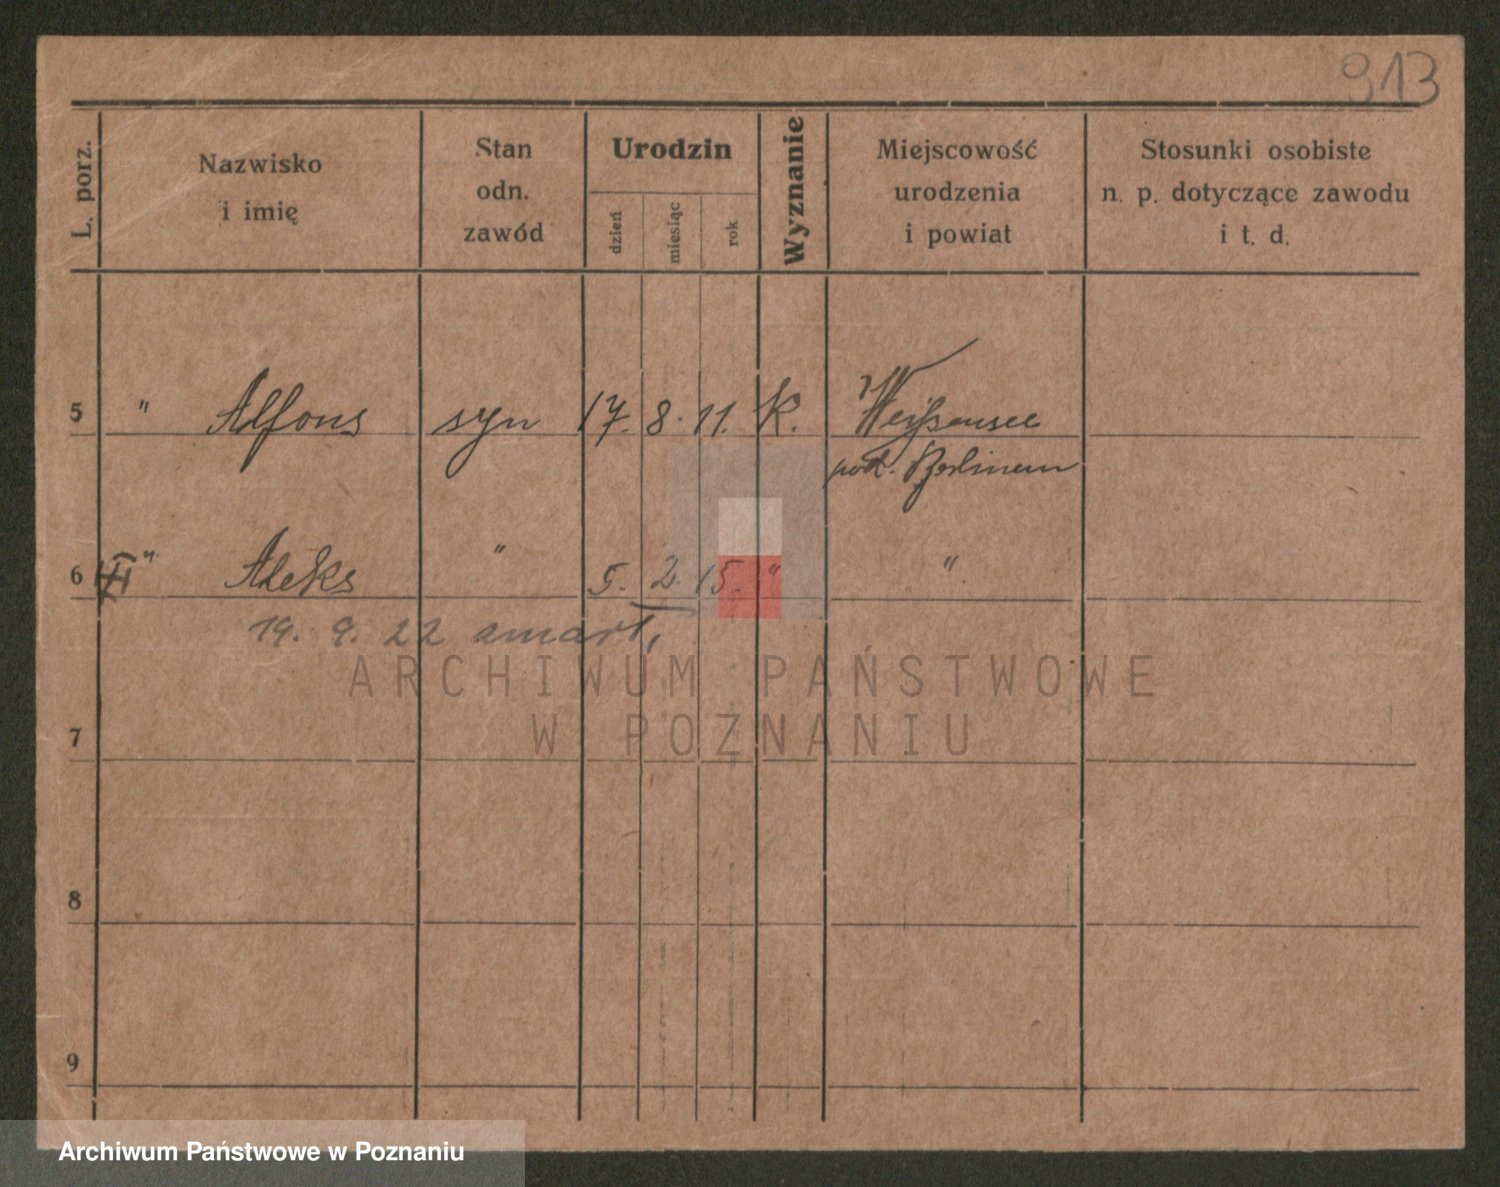 913
L. porz.
Nazwisko
i imię
Stan
odn.
zawód
Urodzin
dzień
miesiąc
rok
Wyznanie
Miejscowość
urodzenia
i powiat
Stosunki osobiste
n. p. dotyczące zawodu
i t. d.
5 " Alfons syn 17. 8. 11. K. Weißensee
pod. Berlinem
6 " Aleks " 5. 2. 15. " "
19. 9. 22 amarł,
ARCHIWUM PAŃSTWOWE
W POZNANIU
7
8
9
Archiwum Państwowe w Poznaniu